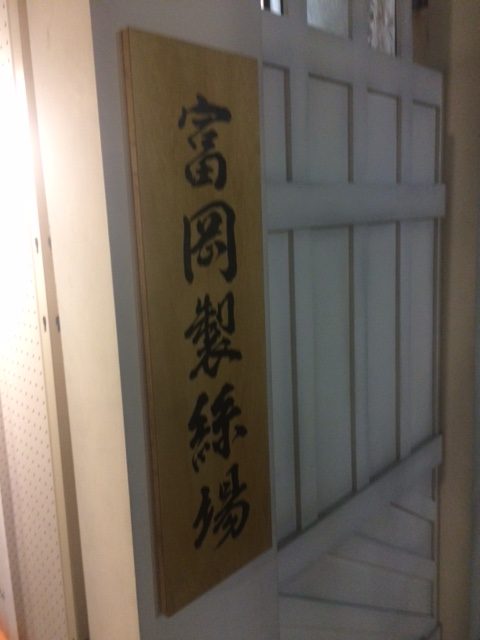 富岡製絲場